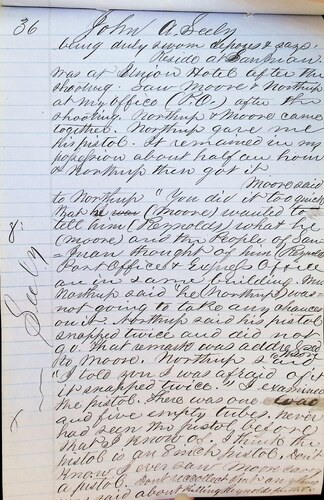 36
John A. Seely
being duly sworn deposes & says.
Reside at Sanman.
was at Union Hotel after the
shooting. Saw Moore & Northup
at my office (P.O.) after the
shooting. Northup & Moore came
together. Northup gave me
his pistol. It remained in my
possession about half an hour
& Northup then got it
Moore said
to Northup "You did it too quick
that he was (Moore) wanted to
tell him (Reynolds) what he
(Moore) and the People of San-
man thought of him
Post Office & Express Office
are in same building. Mr
Northup said "he (Northup) was
not going to take any chances
on it. Northup said his pistol
snapped twice and did not
go. That remark was addressed
to Moore. Northup said
"I told you I was afraid of it
it snapped twice." I examined
the pistol. There was one load
and five empty tubes. never
had seen the pistol before
that I know of. I think the
pistol is an 8 inch pistol. Don't
know I ever saw Moore
a pistol. Dont recollect
said about killing
8:
Seely